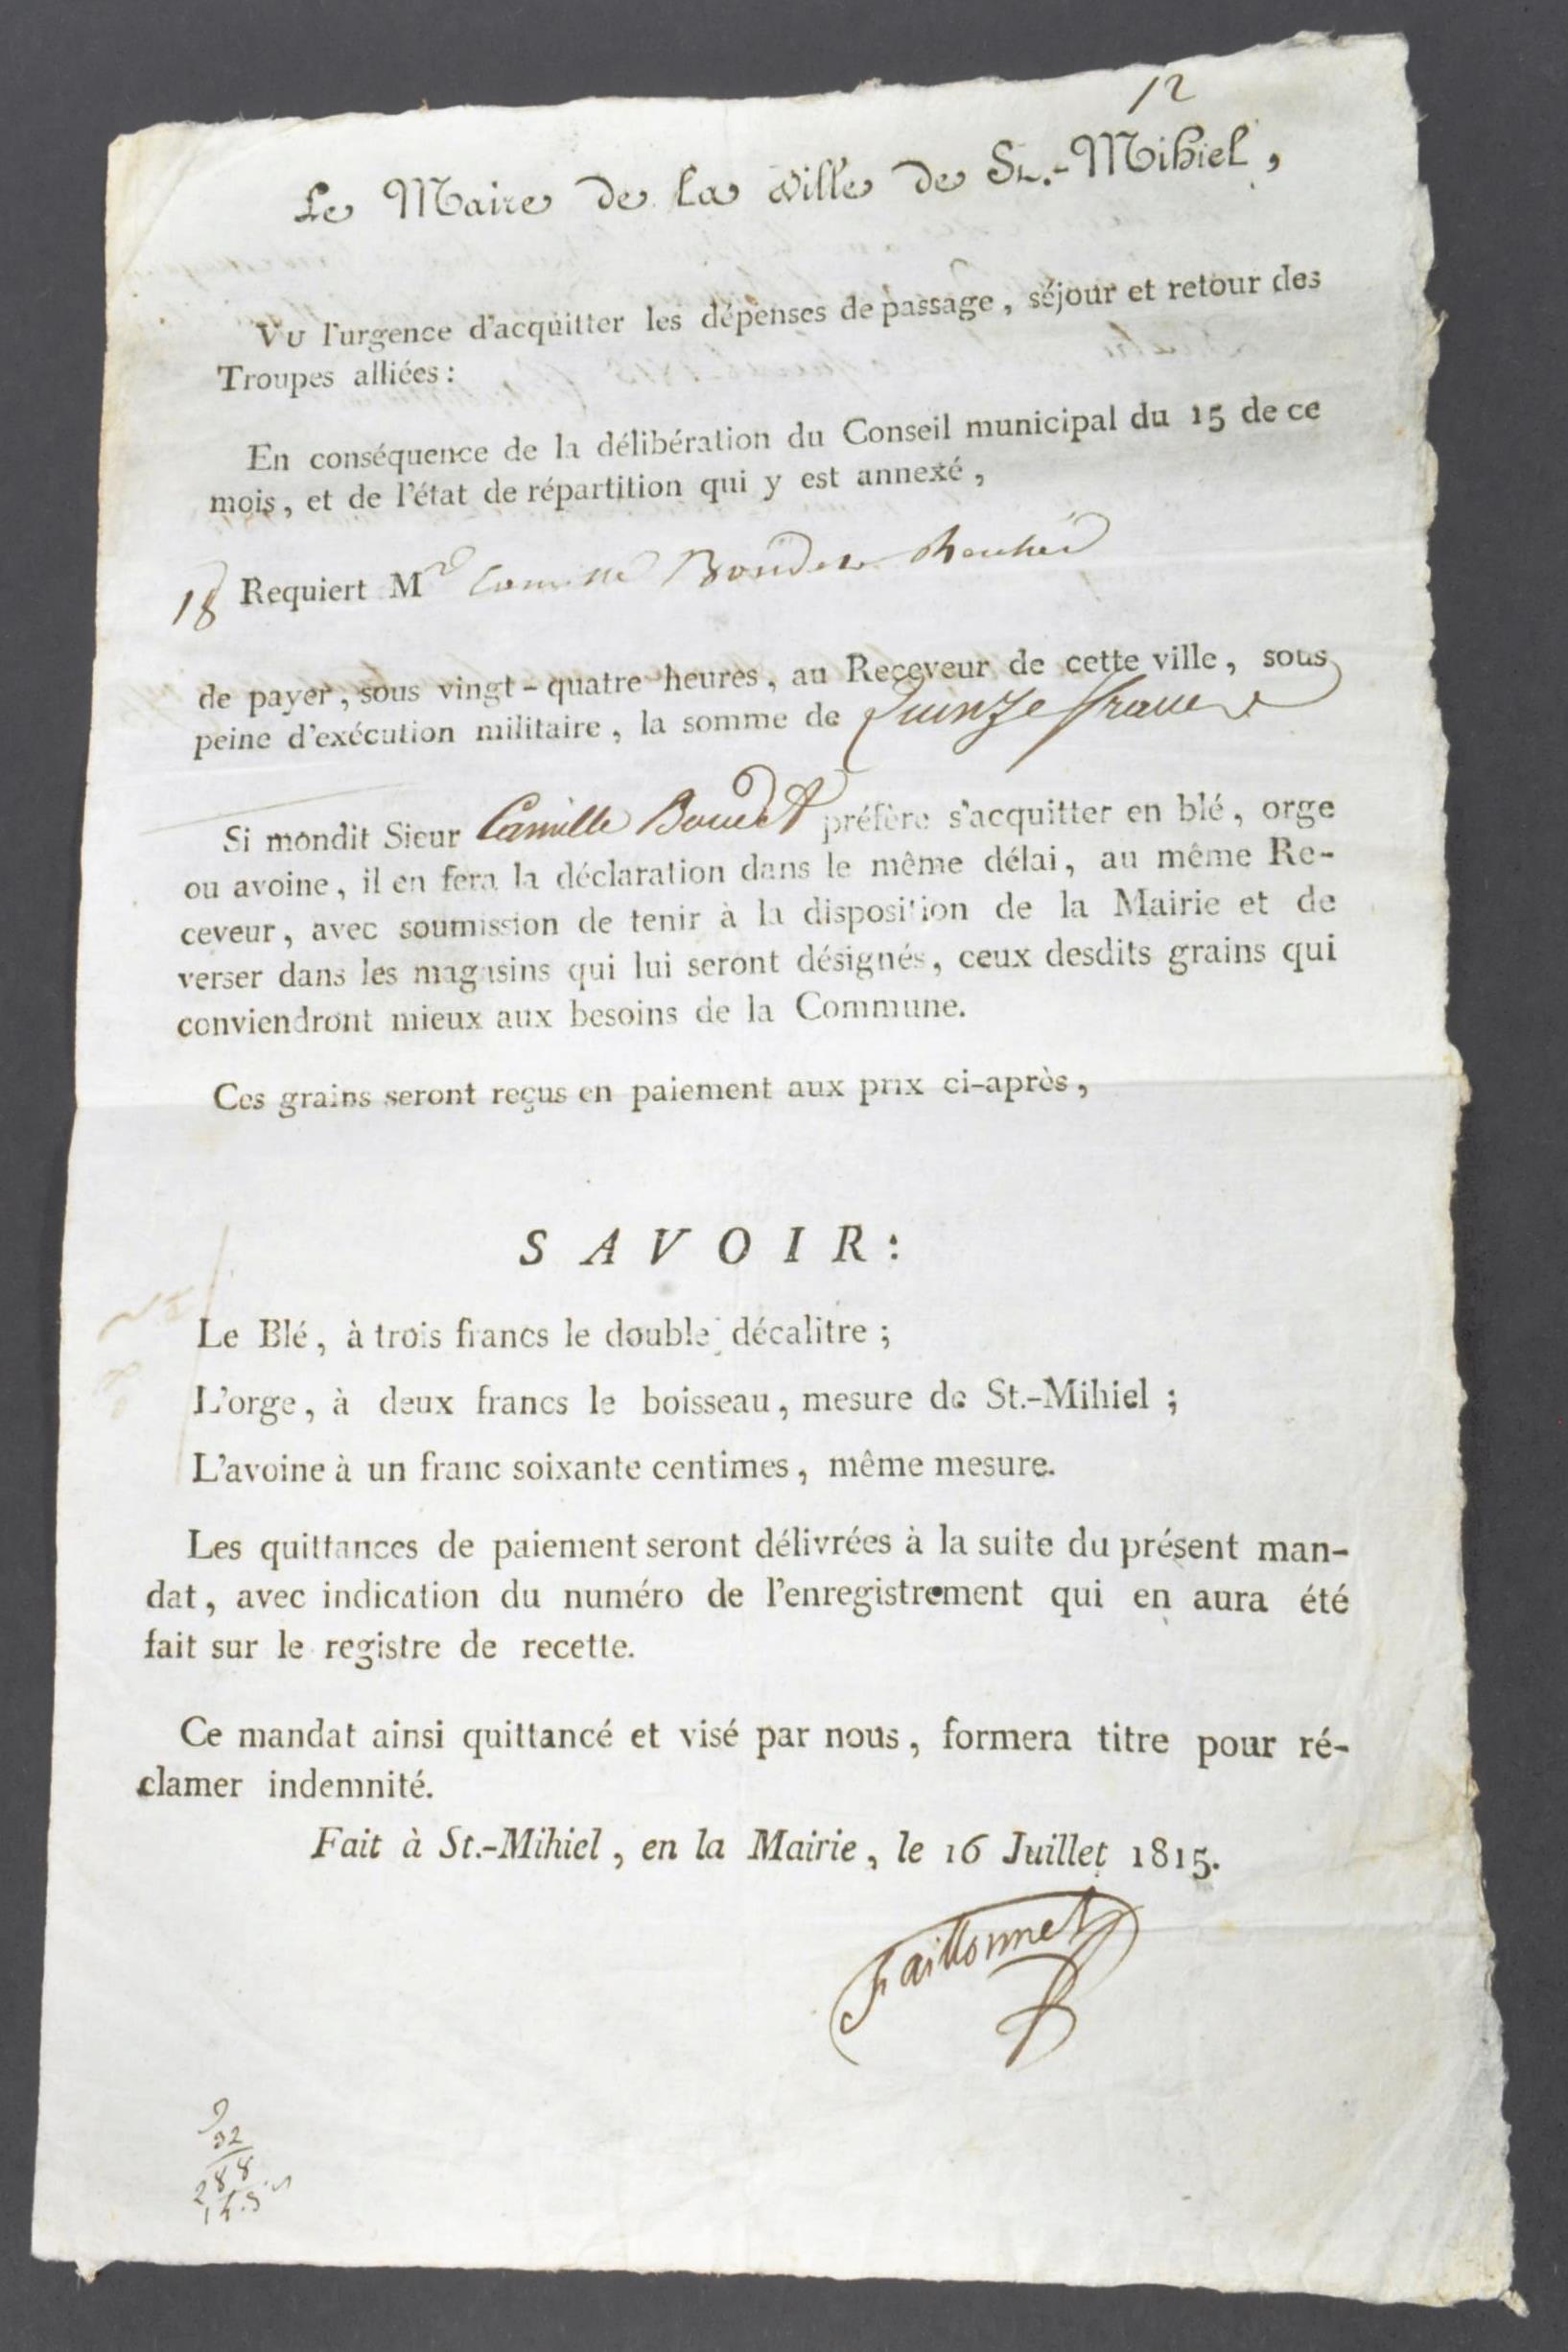 12
Le Maire de la ville de St.-Mihiel,
VU l'urgence d'acquitter les dépenses de passage, séjour et retour des
Troupes alliées:
En conséquence de la délibération du Conseil municipal du 15 de ce
mois, et de l'état de répartition qui y est annexé,
18 Requiert Mr Camille
de payer, sous vingt-quatre heures, au Receveur de cette ville, sous
peine d'exécution militaire, la somme de Quinze francs
Si mondit Sieur Camille Boudet préfère s'acquitter en blé, orge
ou avoine, il en fera la déclaration dans le même délai, au même Re-
ceveur, avec soumission de tenir à la disposition de la Mairie et de
verser dans les magasins qui lui seront désignés, ceux desdits grains qui
conviendront mieux aux besoins de la Commune.
Ces grains seront reçus en paiement aux prix ci-après,
SAVOIR:
Le Blé, à trois francs le double décalitre;
L'orge, à deux francs le boisseau, mesure de St.-Mihiel;
L'avoine à un franc soixante centimes, même mesure.
Les quittances de paiement seront délivrées à la suite du présent man-
dat, avec indication du numéro de l'enregistrement qui en aura été
fait sur le registre de recette.
Ce mandat ainsi quittancé et visé par nous, formera titre pour ré-
clamer indemnité.
Fait à St.-Mihiel, en la Mairie, le 16 Juillet 1815.
Faillonnet
9
32
288